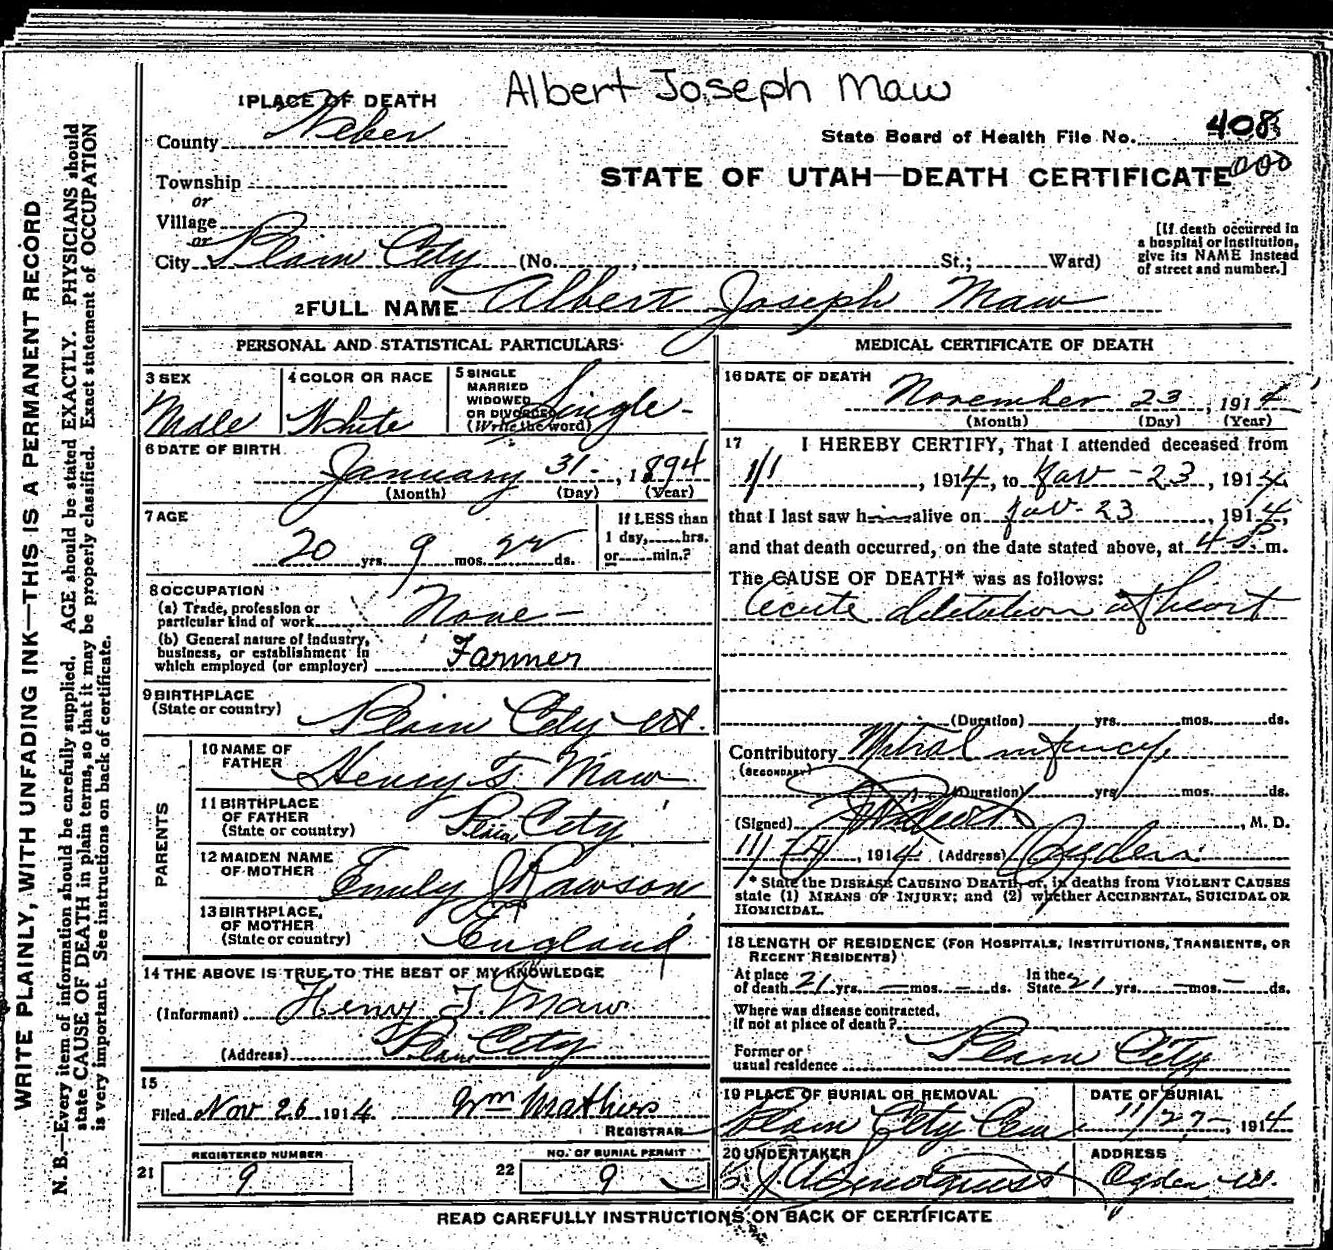 Albert Joseph Maw
1 PLACE OF DEATH
County Weber
State Board of Health File No. 408
000
Township
or
STATE OF UTAH—DEATH CERTIFICATE
Village
or
City Plain City (No. , St.; Ward)
[If death occurred in
a hospital or institution,
give its NAME instead
of street and number.]
2 FULL NAME Albert Joseph Maw
PERSONAL AND STATISTICAL PARTICULARS
3 SEX
Male
4 COLOR OR RACE
White
5 SINGLE
MARRIED
WIDOWED
OR DIVORCED
(Write the word)
Single
6 DATE OF BIRTH
January 31 , 1894
(Month) (Day) (Year)
7 AGE
20 yrs. 9 mos. 22 ds.
If LESS than
1 day, hrs.
or min.?
8 OCCUPATION
(a) Trade, profession or
particular kind of work None
(b) General nature of industry,
business, or establishment in
which employed (or employer) Farmer
9 BIRTHPLACE
(State or country) Plain City Ut.
PARENTS
10 NAME OF
FATHER Henry T. Maw
11 BIRTHPLACE
OF FATHER
(State or country) Plain City
12 MAIDEN NAME
OF MOTHER Emily J Rawson
13 BIRTHPLACE
OF MOTHER
(State or country) England
14 THE ABOVE IS TRUE TO THE BEST OF MY KNOWLEDGE
(Informant) Henry T. Maw
(Address) Plain City
15
Filed Nov 26 1914 Wm Mathers
REGISTRAR
REGISTERED NUMBER
21 9
NO. OF BURIAL PERMIT
22 9
MEDICAL CERTIFICATE OF DEATH
16 DATE OF DEATH
November 23 , 1914
(Month) (Day) (Year)
17 I HEREBY CERTIFY, That I attended deceased from
1/1 , 1914, to Nov - 23 , 1914,
that I last saw him alive on Nov - 23 , 1914,
and that death occurred, on the date stated above, at 4 P. m.
The CAUSE OF DEATH* was as follows:
Acute dilatation of heart
(Duration) yrs. mos. ds.
Contributory Mitral
(SECONDARY)
(Duration) yrs. mos. ds.
(Signed) , M. D.
11/ , 1914 (Address) Ogden
* State the DISEASE CAUSING DEATH, or, in deaths from VIOLENT CAUSES
state (1) MEANS OF INJURY; and (2) whether ACCIDENTAL, SUICIDAL OR
HOMICIDAL.
18 LENGTH OF RESIDENCE (FOR HOSPITALS, INSTITUTIONS, TRANSIENTS, OR
RECENT RESIDENTS)
At place
of death 21 yrs. — mos. — ds.
In the
State 21 yrs. — mos. — ds.
Where was disease contracted,
if not at place of death?
Former or
usual residence Plain City
19 PLACE OF BURIAL OR REMOVAL
Plain City Cem
DATE OF BURIAL
11/27 , 1914
20 UNDERTAKER
ADDRESS
Ogden Ut.
READ CAREFULLY INSTRUCTIONS ON BACK OF CERTIFICATE
WRITE PLAINLY, WITH UNFADING INK—THIS IS A PERMANENT RECORD
N. B.—Every item of information should be carefully supplied. AGE should be stated EXACTLY. PHYSICIANS should
state CAUSE OF DEATH in plain terms, so that it may be properly classified. Exact statement of OCCUPATION
is very important. See instructions on back of certificate.